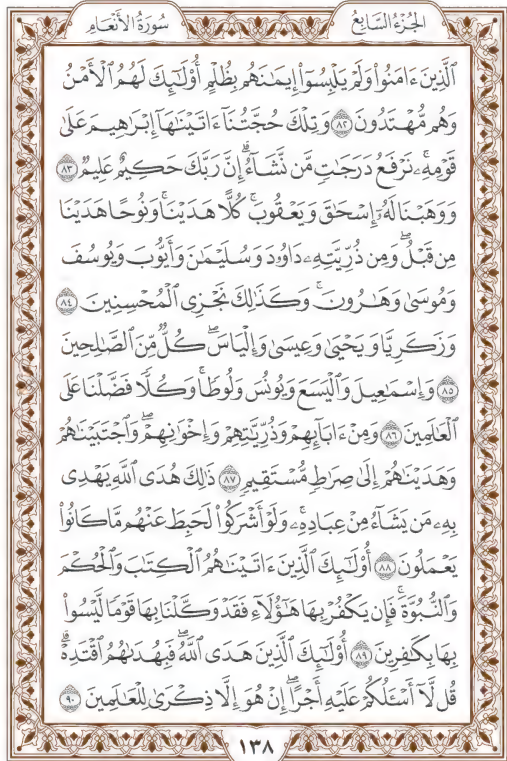 سُورَةُ الأَنْعَامِ
الجُزْءُ السَّابِعُ
ٱلَّذِينَ ءَامَنُوا۟ وَلَمْ يَلْبِسُوٓا۟ إِيمَـٰنَهُم بِظُلْمٍ أُو۟لَـٰٓئِكَ لَهُمُ ٱلْأَمْنُ
وَهُم مُّهْتَدُونَ ٨٢ وَتِلْكَ حُجَّتُنَآ ءَاتَيْنَـٰهَآ إِبْرَٰهِيمَ عَلَىٰ
قَوْمِهِۦۚ نَرْفَعُ دَرَجَـٰتٍ مَّن نَّشَآءُۗ إِنَّ رَبَّكَ حَكِيمٌ عَلِيمٌ ٨٣
وَوَهَبْنَا لَهُۥٓ إِسْحَـٰقَ وَيَعْقُوبَۚ كُلًّا هَدَيْنَاۚ وَنُوحًا هَدَيْنَا
مِن قَبْلُۖ وَمِن ذُرِّيَّتِهِۦ دَاوُۥدَ وَسُلَيْمَـٰنَ وَأَيُّوبَ وَيُوسُفَ
وَمُوسَىٰ وَهَـٰرُونَۚ وَكَذَٰلِكَ نَجْزِى ٱلْمُحْسِنِينَ ٨٤
وَزَكَرِيَّا وَيَحْيَىٰ وَعِيسَىٰ وَإِلْيَاسَۖ كُلٌّ مِّنَ ٱلصَّـٰلِحِينَ
٨٥ وَإِسْمَـٰعِيلَ وَٱلْيَسَعَ وَيُونُسَ وَلُوطًاۚ وَكُلًّا فَضَّلْنَا عَلَى
ٱلْعَـٰلَمِينَ ٨٦ وَمِنْ ءَابَآئِهِمْ وَذُرِّيَّـٰتِهِمْ وَإِخْوَٰنِهِمْۖ وَٱجْتَبَيْنَـٰهُمْ
وَهَدَيْنَـٰهُمْ إِلَىٰ صِرَٰطٍ مُّسْتَقِيمٍ ٨٧ ذَٰلِكَ هُدَى ٱللَّهِ يَهْدِى
بِهِۦ مَن يَشَآءُ مِنْ عِبَادِهِۦۚ وَلَوْ أَشْرَكُوا۟ لَحَبِطَ عَنْهُم مَّا كَانُوا۟
يَعْمَلُونَ ٨٨ أُو۟لَـٰٓئِكَ ٱلَّذِينَ ءَاتَيْنَـٰهُمُ ٱلْكِتَـٰبَ وَٱلْحُكْمَ
وَٱلنُّبُوَّةَۚ فَإِن يَكْفُرْ بِهَا هَـٰٓؤُلَآءِ فَقَدْ وَكَّلْنَا بِهَا قَوْمًا لَّيْسُوا۟
بِهَا بِكَـٰفِرِينَ ٨٩ أُو۟لَـٰٓئِكَ ٱلَّذِينَ هَدَى ٱللَّهُۖ فَبِهُدَىٰهُمُ ٱقْتَدِهْۗ
قُل لَّآ أَسْـَٔلُكُمْ عَلَيْهِ أَجْرًاۖ إِنْ هُوَ إِلَّا ذِكْرَىٰ لِلْعَـٰلَمِينَ ٩٠
١٣٨